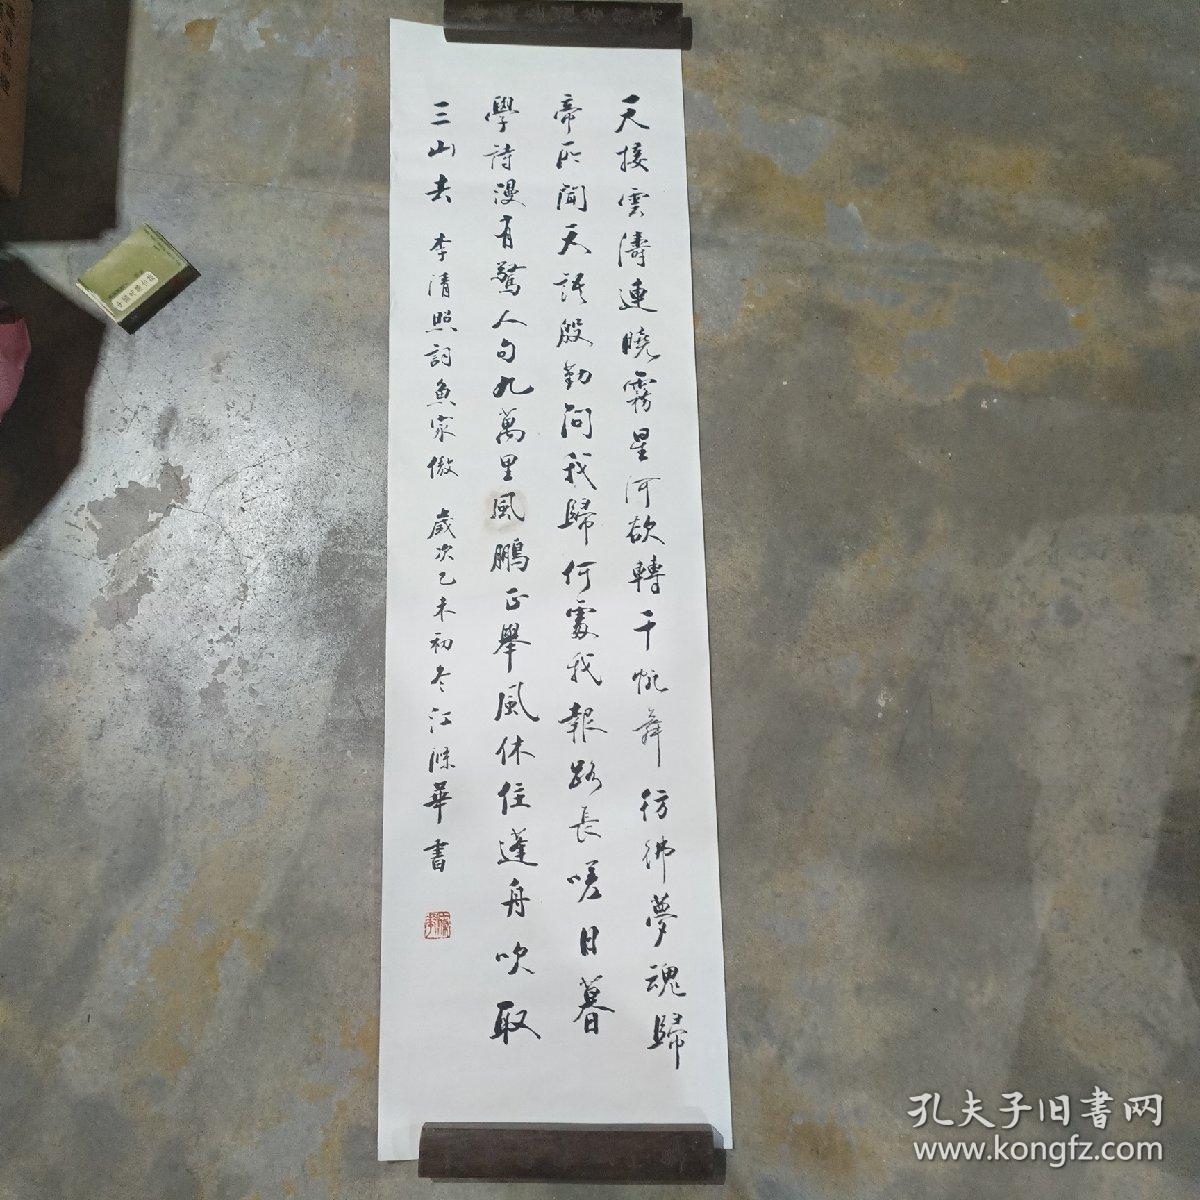 天接雲濤連曉霧星河欲轉千帆舞彷彿夢魂歸
帝所聞天語殷勤問我歸何處我報路長嗟日暮
學詩漫有驚人句九萬里風鵬正舉風休住蓬舟吹取
三山去 李清照詞魚家傲 歲次乙未初冬江滌華書
孔夫子旧書网
www.kongfz.com